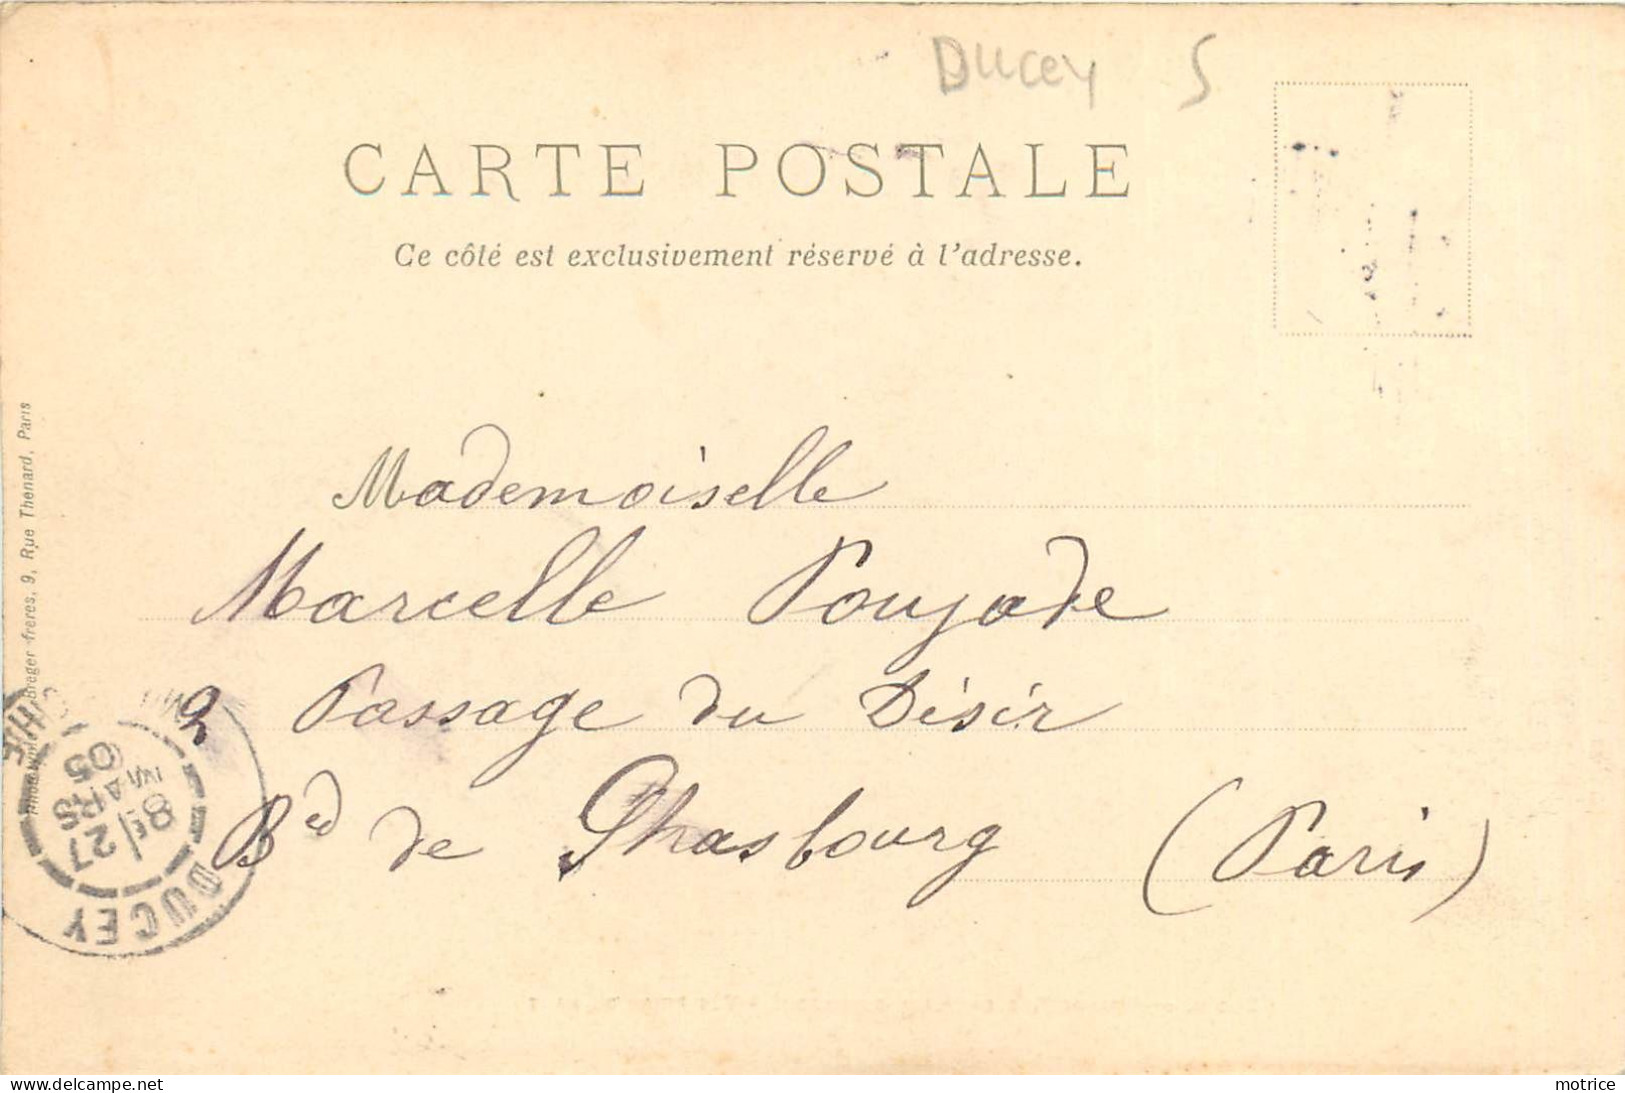 Ducey 5
CARTE POSTALE
Ce côté est exclusivement réservé à l'adresse.
Mademoiselle
Marcelle Poujade
2 Passage du Désir
Bd de Strasbourg (Paris)
Breger frères, 9, Rue Thénard, Paris
DUCEY
8E/27
MARS
05
delcampe.net
motrice